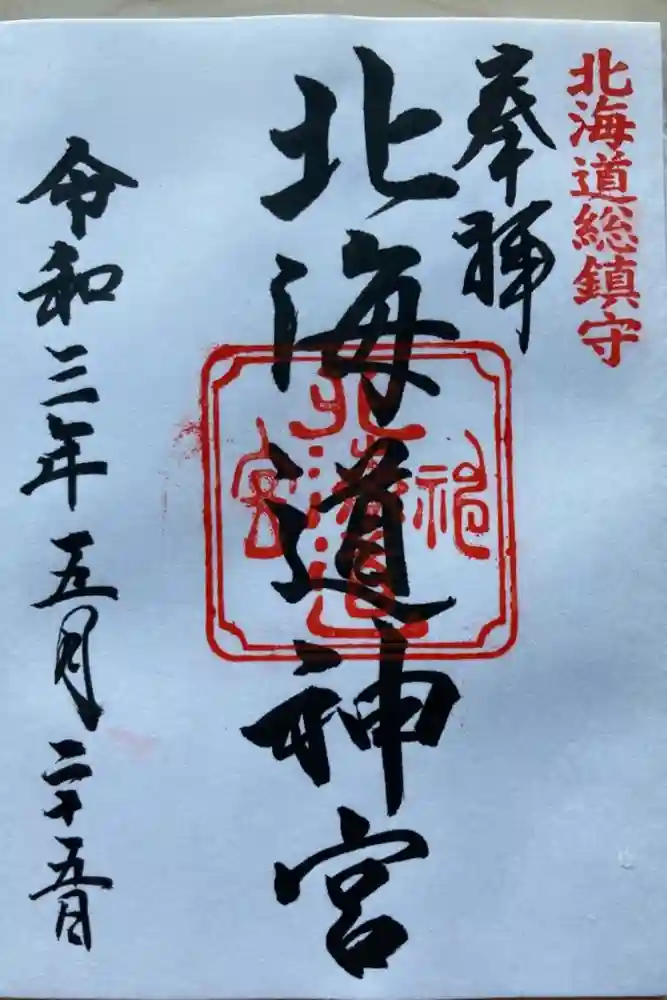 北海道総鎮守
奉拝
北海道神宮
令和三年五月二十五日